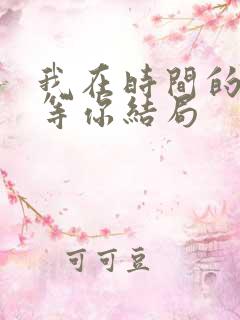 我在時間的
等你結局
可可豆